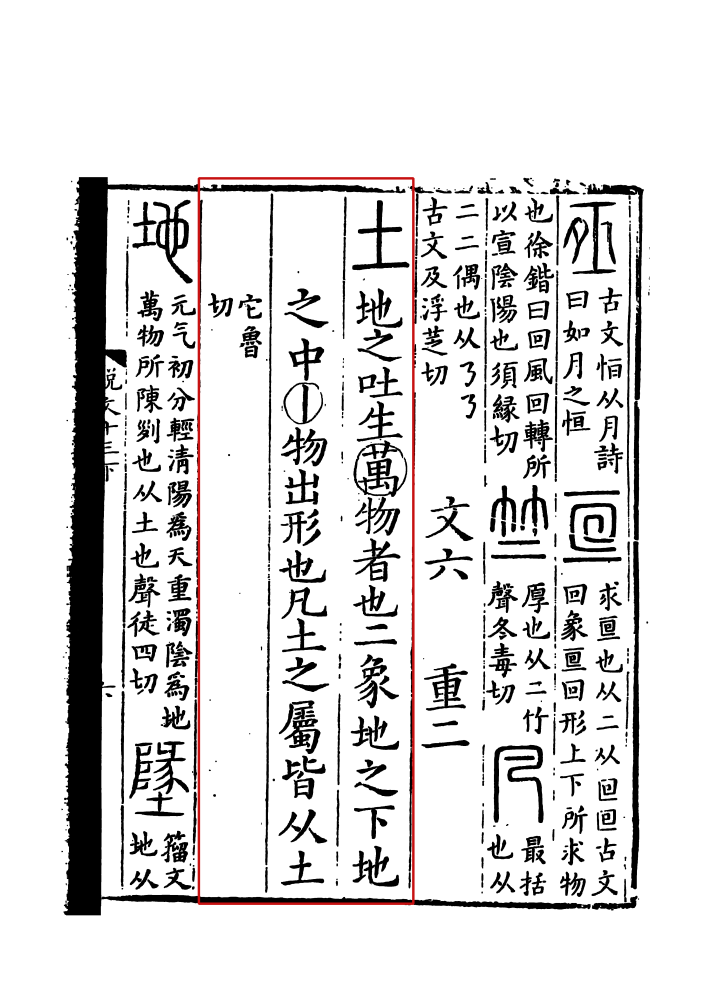 𠄨
古文恒从月詩
曰如月之恒
亘
求亘也从二从囘囘古文
回象亘回形上下所求物
也徐鍇曰回風回轉所
以宣陰陽也須緣切
竺
厚也从二竹
聲冬毒切
凡
最括
也从
二二偶也从𠄎𠄎
古文及浮芝切
文六
重二
土
地之吐生萬物者也二象地之下地
之中丨物出形也凡土之屬皆从土
它魯
切
地
元气初分輕清陽爲天重濁陰爲地
萬物所陳𠛱也从土也聲徒四切
墬
籀文
地从
説文十三下